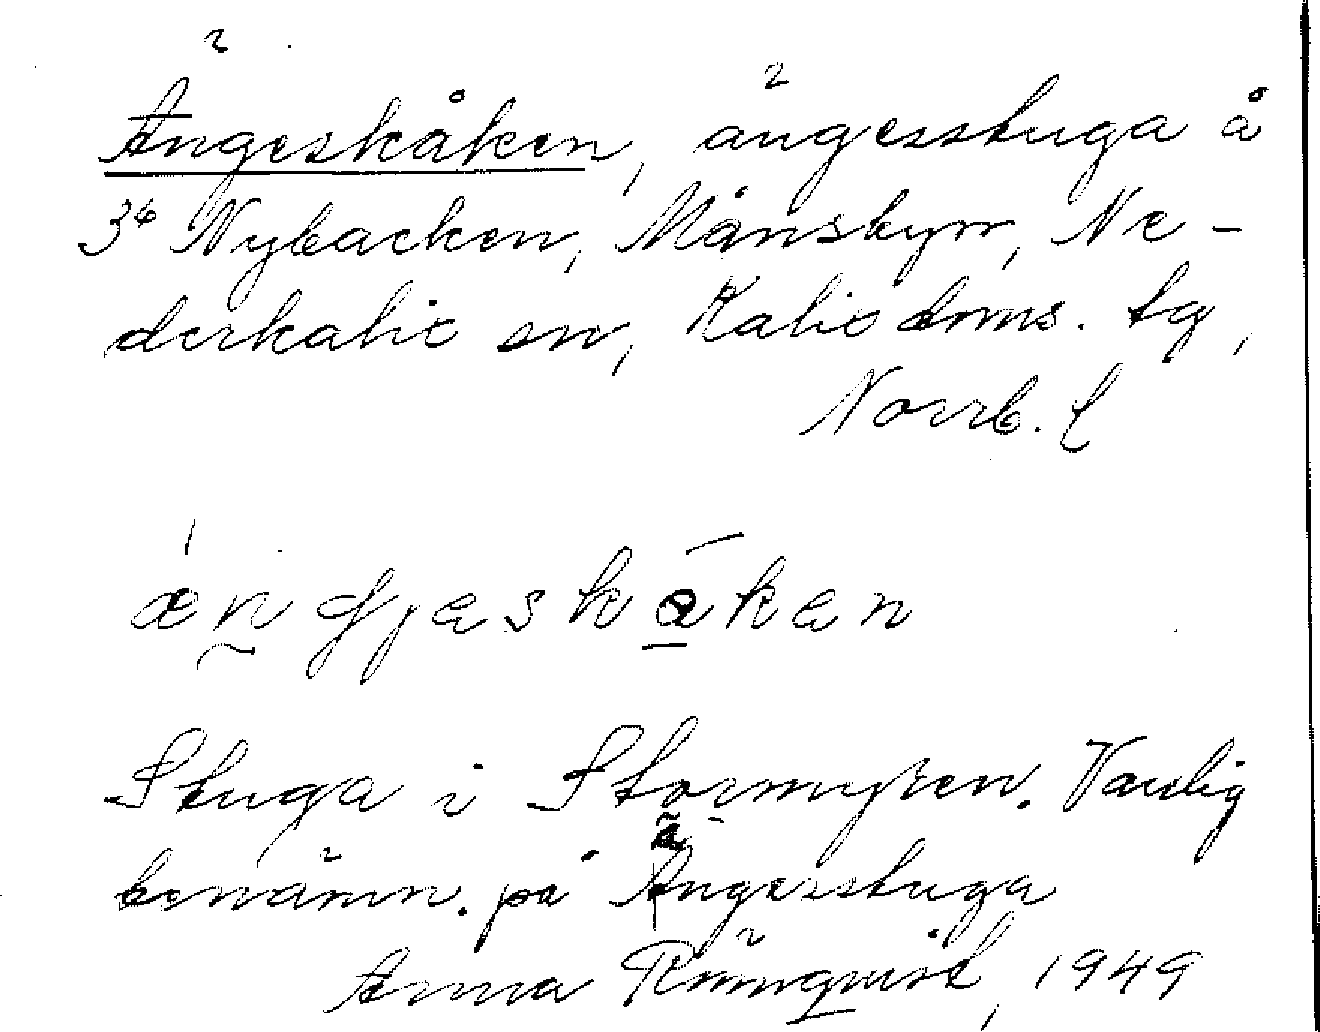 Ängeskåken, ängesstuga å
3⁶ Nybacken, Månsbyn, Ne-
derkalix sn, Kalix doms. tg,
Norrb. l
ängjeskåkan
Stuga i Stormyren. Vanlig
benämn. på Ängesstuga
Anna Rönnqvist, 1949